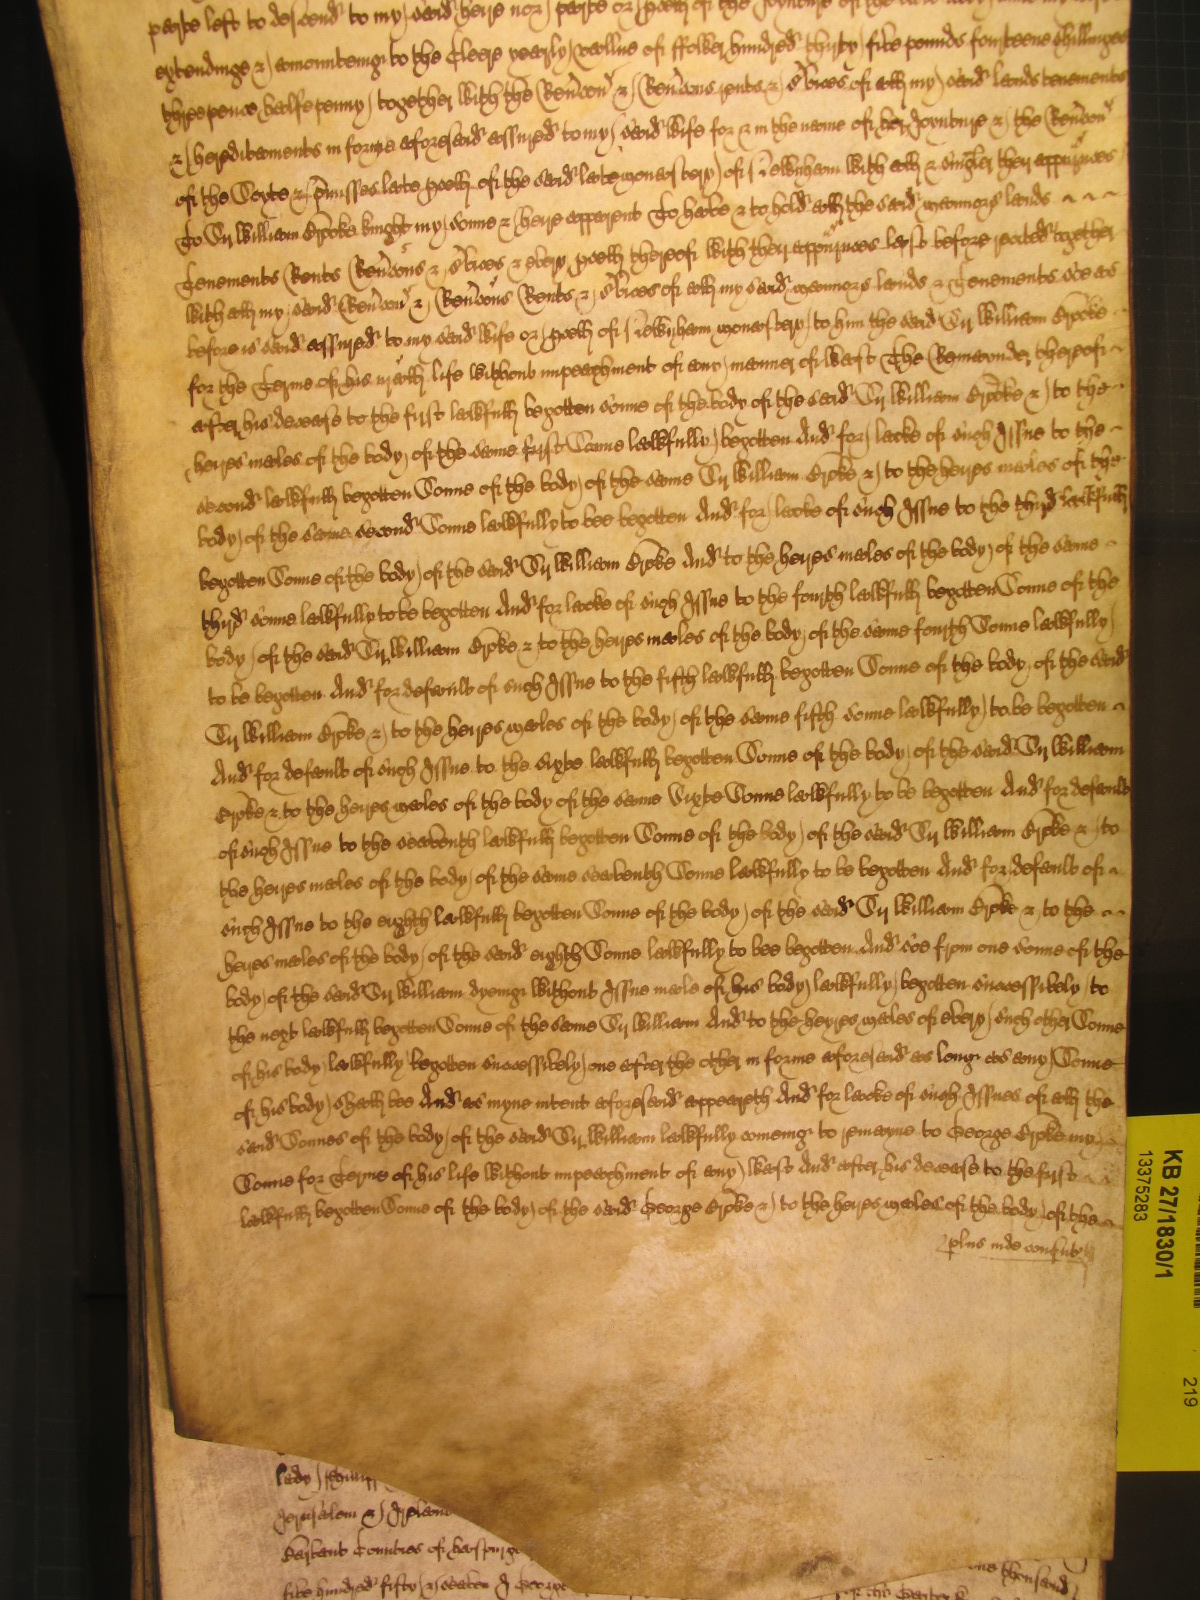 parte left to descend to my said heire nor parte or pcell of the Joynture of the
extendinge & amountenge to the Cleere yearly vallue of ffower hundred thirty five pounds fourteene shillinges
three pence halfe penny together with the Revcon & Revcons rents & svices of all my said lands tenements
& hereditaments in forme aforesaid assured to my said wife for & in the name of her Joynture & the Revcon
of the Scyte & pmisses late pcell of the said late monastery of Newnham with all & singler ther appurtnces
To Sir William Cobham knight my sonne & heire apparent To have & to hold all the said mannors lands
Tenements Rents Revcons & svices & every pcell thereof with ther appurtnces last before recited together
with all my said Revcon & Revcons Rents & svices of all my said mannors lands & Tenements soe as
before is said assured to my said wife or pcell of Newnham monastery to him the said Sir William
for the Terme of his naturall life without impeachment of any manner of wast The Remaynder thereof
after his decease to the first lawfull begotten sonne of the body of the said Sir William & to the
heires males of the body of the same first Sonne lawfully begotten And for lacke of such Issue to the
second lawfull begotten Sonne of the body of the same Sir William & to the heires males of the
body of the same second Sonne lawfully to bee begotten And for lacke of such Issue to the third lawfull
begotten Sonne of the body of the said Sir William And to the heires males of the body of the same
third sonne lawfully to be begotten And for lacke of such Issue to the fourth lawfull begotten Sonne of the
body of the said Sir William & to the heires males of the body of the same fourth Sonne lawfully
to be begotten And for default of such Issue to the fifth lawfull begotten Sonne of the body of the said
Sir William & to the heires males of the body of the same fifth sonne lawfully to be begotten
And for default of such Issue to the sixte lawfull begotten Sonne of the body of the said Sir William
& to the heires males of the body of the same Sixte Sonne lawfully to be begotten And for default
of such Issue to the seaventh lawfull begotten Sonne of the body of the said Sir William & to
the heires males of the body of the same seaventh Sonne lawfully to be begotten And for default of
such Issue to the eighth lawfull begotten Sonne of the body of the said Sir William & to the
heires males of the body of the said eighth Sonne lawfully to bee begotten And soe from one sonne of the
body of the said Sir William dyenge without Issue male of his body lawfully begotten successively to
the next lawfull begotten Sonne of the same Sir William And to the heyres males of every such other Sonne
of his body lawfully begotten successively one after the other in forme aforesaid as longe as any Sonne
of his body shall bee And as myne intent aforesaid appeareth And for lacke of such Issues of all the
said Sonnes of the body of the said Sir William lawfully comeinge to remayne to George my
Sonne for Terme of his life without impeachment of any wast And after his decease to the first
lawfull begotten Sonne of the body of the said George & to the heyres males of the body of the
plus inde
lady
Jerusalem & Ireland
Counties of
five hundred fifty & seaven George
one thousand
KB 27/1830/1
13375283
219